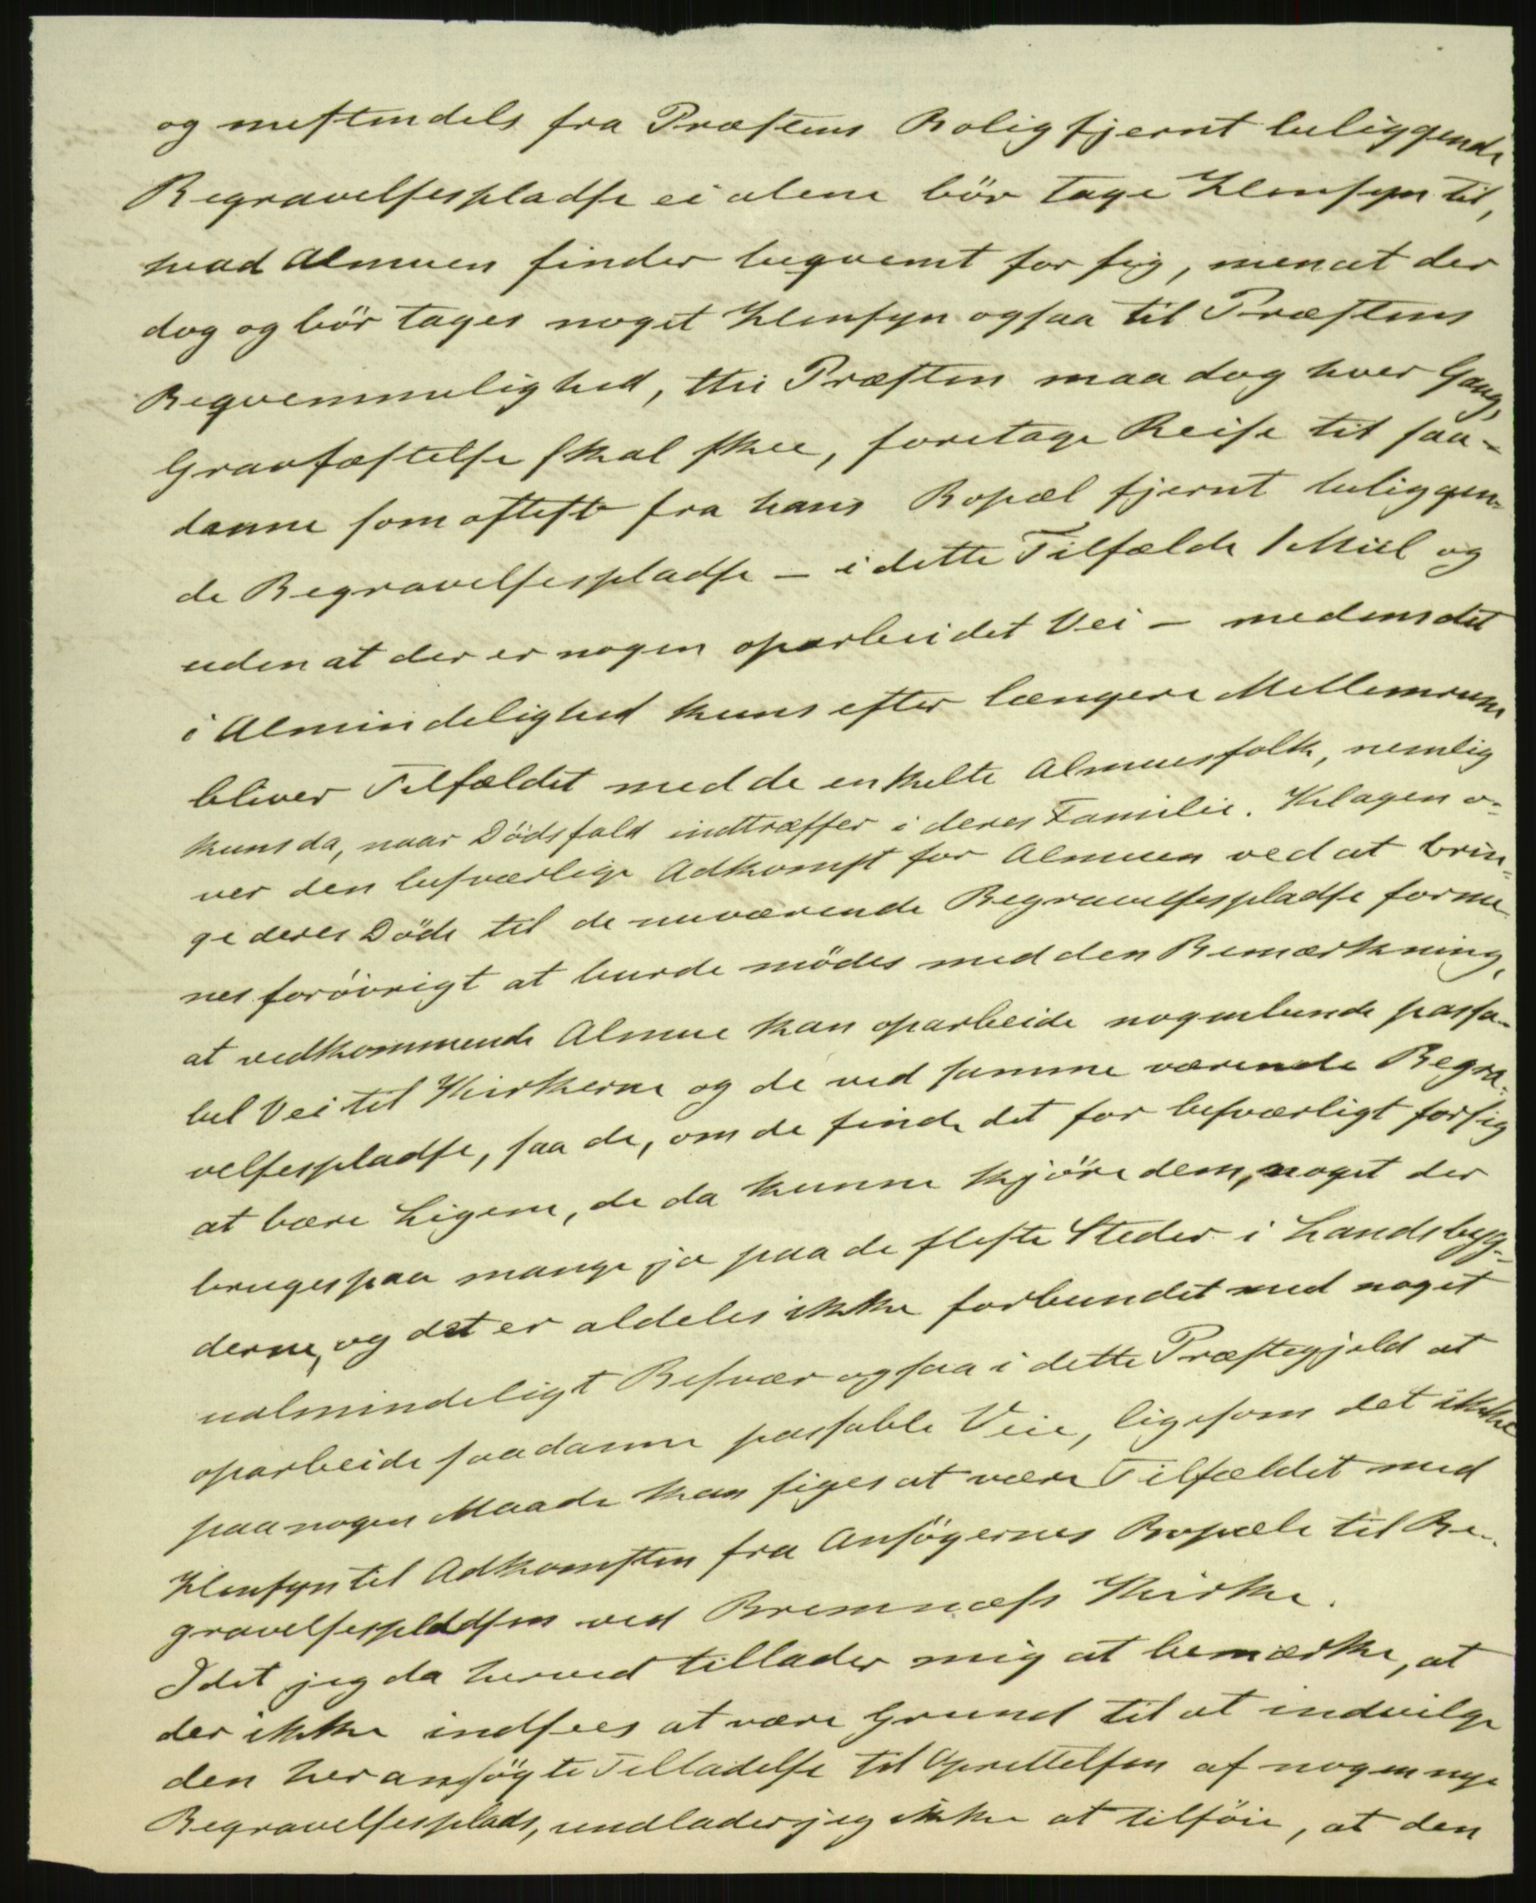 og mestendels fra Præstens Bolig fjernt beliggende
Begravelsespladse ei alene bör tage Hensyn til,
hvad Almuen finder beqvemt for sig, men at der
dog og bör tages noget Hensyn ogsaa til Præstens
Beqvemmelighed, thi Præsten maa dog hver Gang,
Gravfæstelse skal skee, foretage Reise til saa-
danne som oftest fra hans Bopæl fjernt beliggen-
de Begravelsespladse – i dette Tilfælde 1 Miil og
uden at der er nogen oparbeidet Vei – medens det
i Almindelighed kuns efter længere Mellemrum
bliver Tilfældet med de enkelte Almuesfolk, nemlig
kuns da, naar Dödsfald indtræffer i deres Familie. Klagen o-
ver den besværlige Adkomst for Almuen ved at brin-
ge deres Döde til de nuværende Begravelsespladse forme-
nes foröivrigt at burde mödes med den Bemærkning,
at vedkommende Almue kan oparbeide nogenlunde passa-
bel Vei til Kirkerne og de ved samme værende Begra-
velsespladse, saa de, om de finde det for besværligt for sig
at bære Ligene, de da kunne kjöre dem, noget der
bruges paa mange ja paa de fleste Steder i Landsbyg-
derne, og det er aldeles ikke forbundet med noget
ualmindeligt Besvær ogsaa i dette Præstegjeld at
oparbeide saadanne passable Veie, ligesom det ikke
paa nogen Maade kan siges at være Tilfældet med
Hensyn til Adkomsten fra Ansögernes Bopæle til Be-
gravelsespladsen ved Bremnæs Kirke.
Idet jeg da herved tillader mig at bemærke, at
der ikke indsees at være Grund til at indvilge
den her ansögte Tilladelse til Oprettelsen af nogen nye
Begravelsesplads, undlader jeg ikke at tilföie, at den